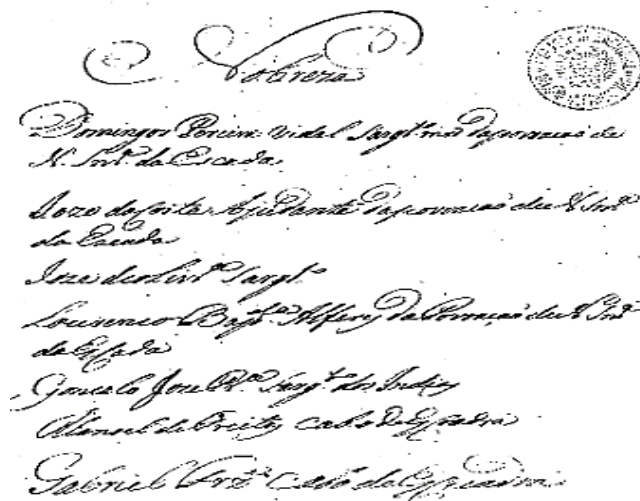 Nobreza
Domingos Pereira Vidal Sargto mor da povoação de
N. Snrª da Escada
Joze da Costa Ajudante da povoação de N Snrª
da Escada
Joze de Olivrª Sargto
Lourenco Baptª Alferes da Povoação de N Snrª
da Escada
Goncalo Joze Sargto dos Indios
Manoel de Freitas Cabo de Esquadra
Gabriel Cabo de Esquadra